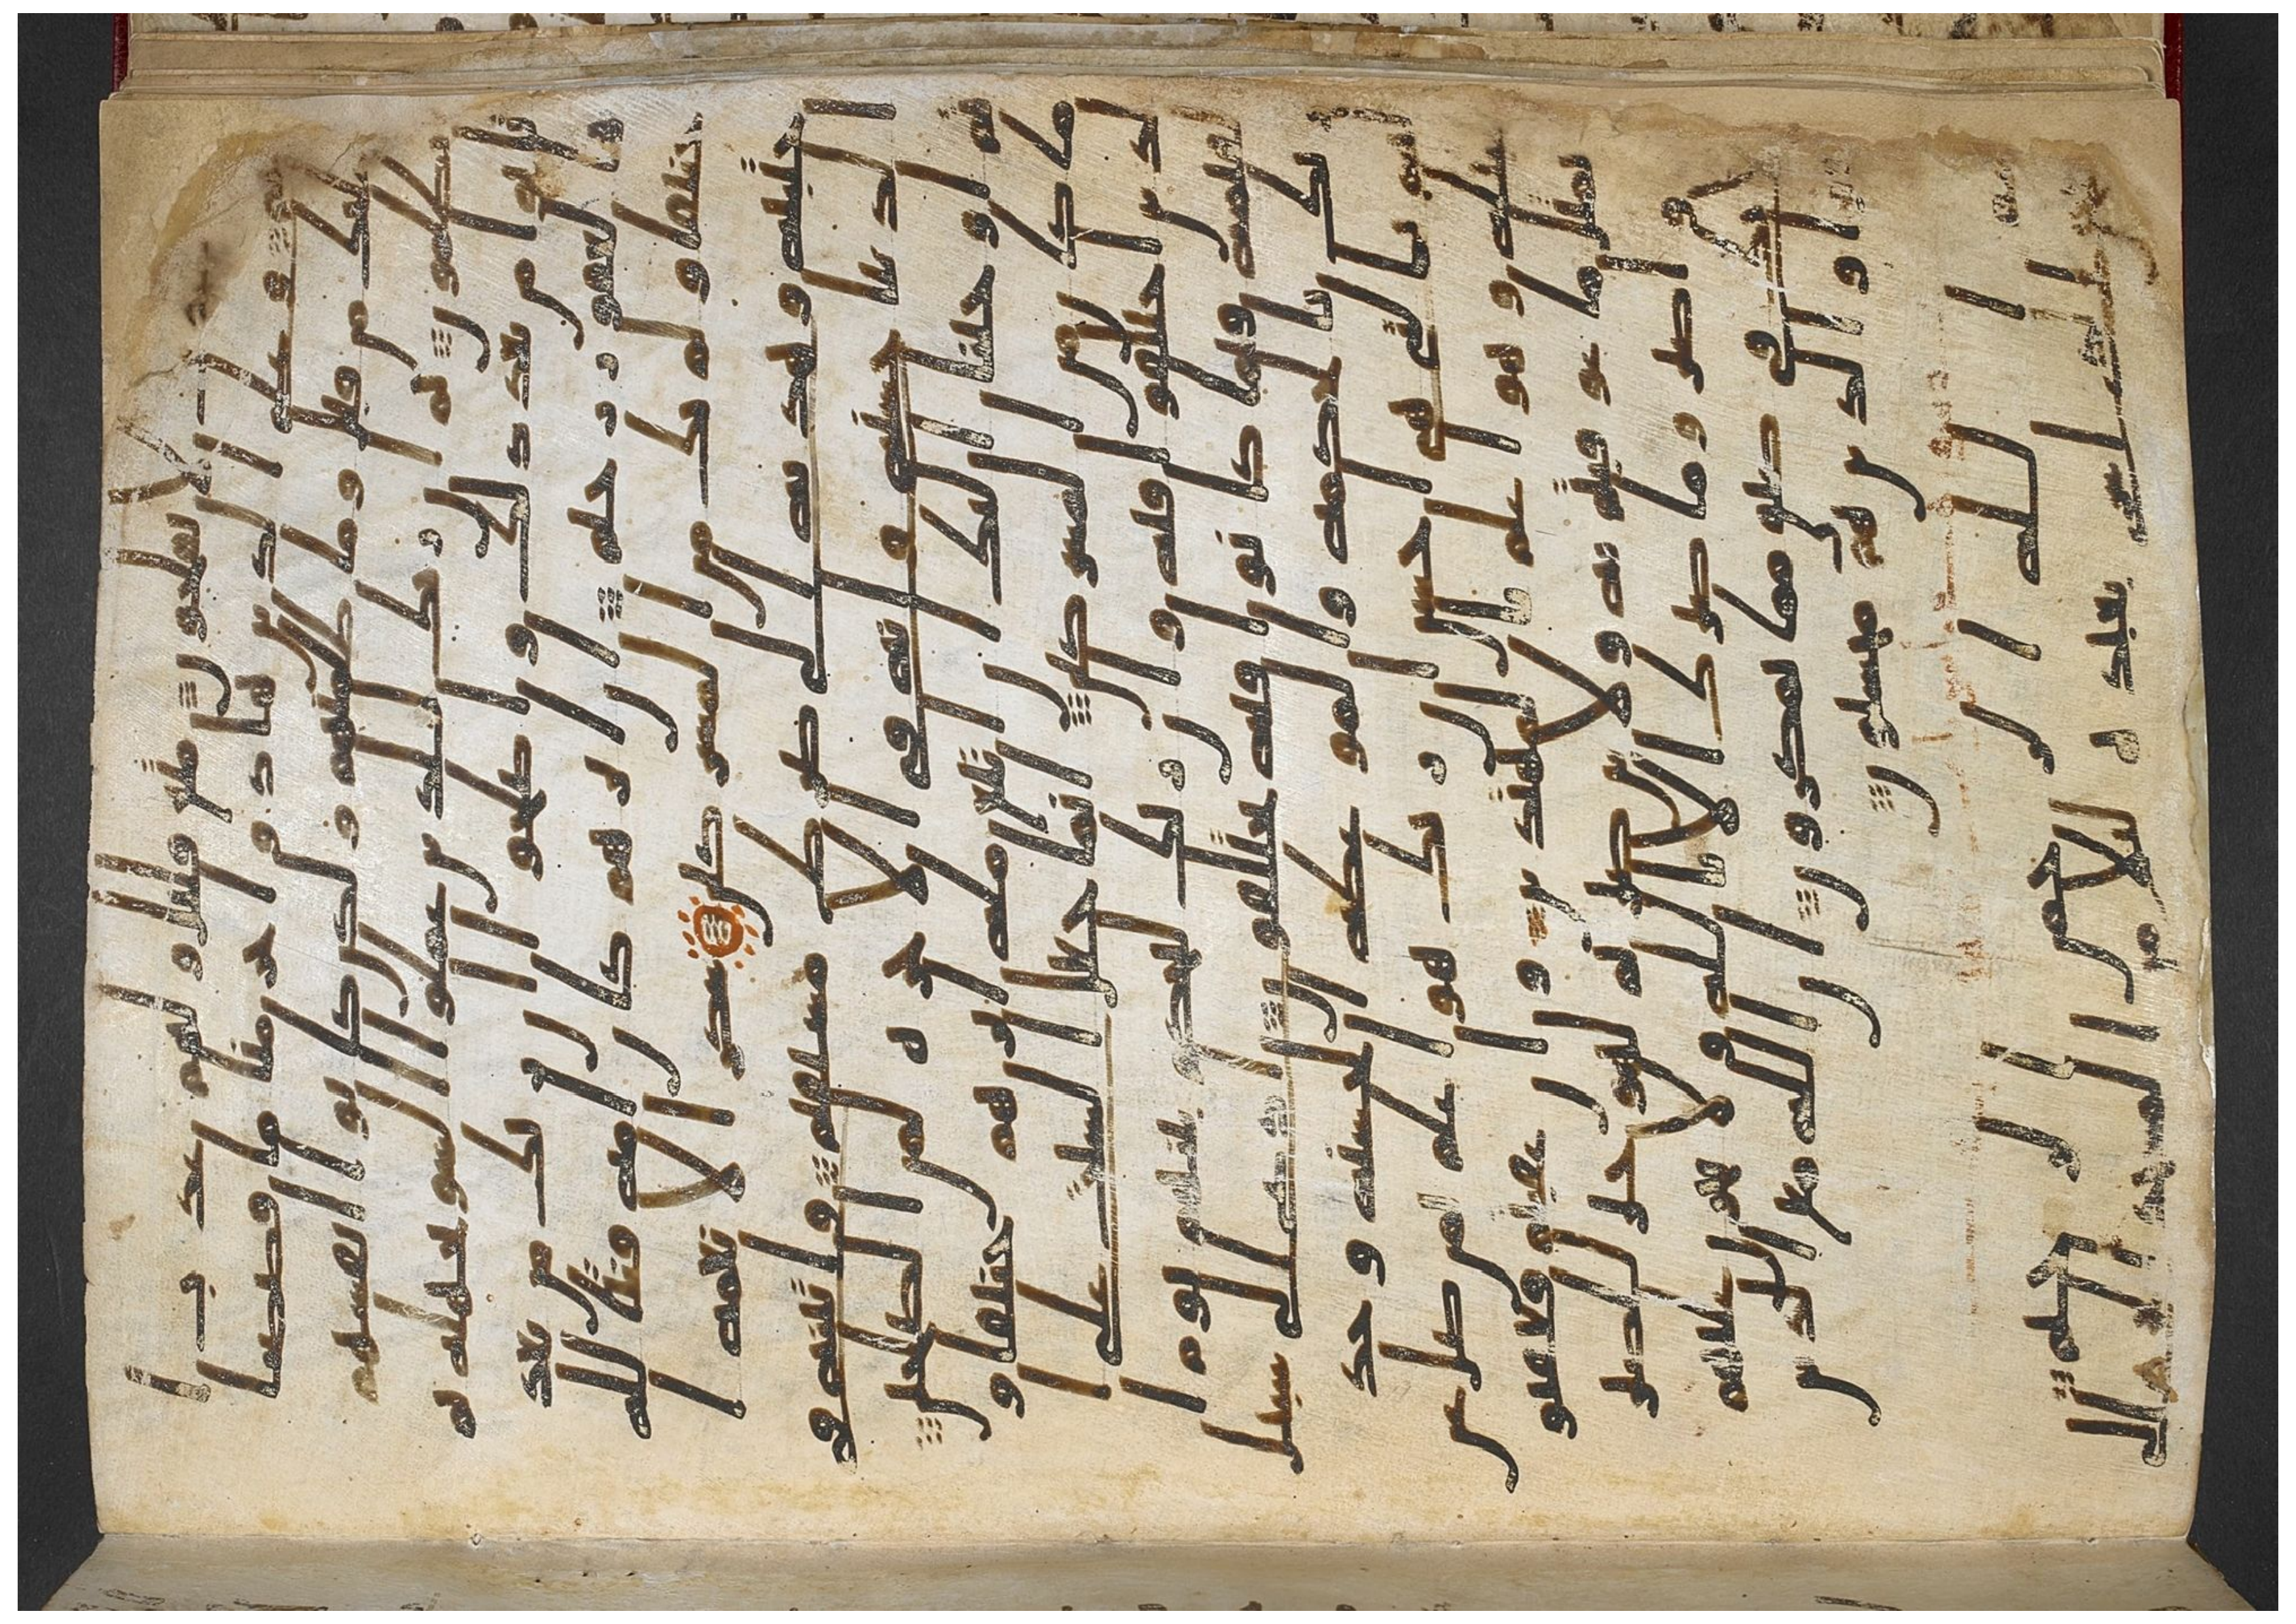 لا يفلحون متع قليل ولهم عذاب ا
ليم وعلى الذين هادوا حرمنا ما قصصنا
عليك من قبل وما ظلمنهم ولكن كانوا انفسهم
يظلمون ثم ان ربك للذين عملوا السو بجهله ثم
تابوا من بعد ذلك واصلحوا ان ربك من بعد
ها لغفور رحيم ان ابرهيم كان امه قنتا لله
حنيفا ولم يك من المشركين شاكرا لانعمه ا
جتبيه وهديه الى صرط مستقيم واتينه في
الدنيا حسنه وانه في الاخره لمن الصلحين
ثم اوحينا اليك ان اتبع مله ابرهيم حنيفا و
ما كان من المشركين انما جعل السبت على ا
لذين اختلفوا فيه وان ربك ليحكم بينهم يوم ا
لقيمه فيما كانوا فيه يختلفون ادع الى سبيل
ربك بالحكمه والموعظه الحسنه وجد
لهم بالتي هي احسن ان ربك هو اعلم بمن ضل عن
سبيله وهو اعلم بالمهتدين وان عقبتم فعقبوا
بمثل ما عوقبتم به ولئن صبرتم لهو خير للصبر
ين واصبر وما صبرك الا بالله ولا تحزن عليهم
ولا تك في ضيق مما يمكرون ان الله مع الذين
اتقوا والذين هم محسنون
بسم الله الرحمن الرحيم
سبحن الذي اسرى بعبده ليلا من المسجد الحرام الى